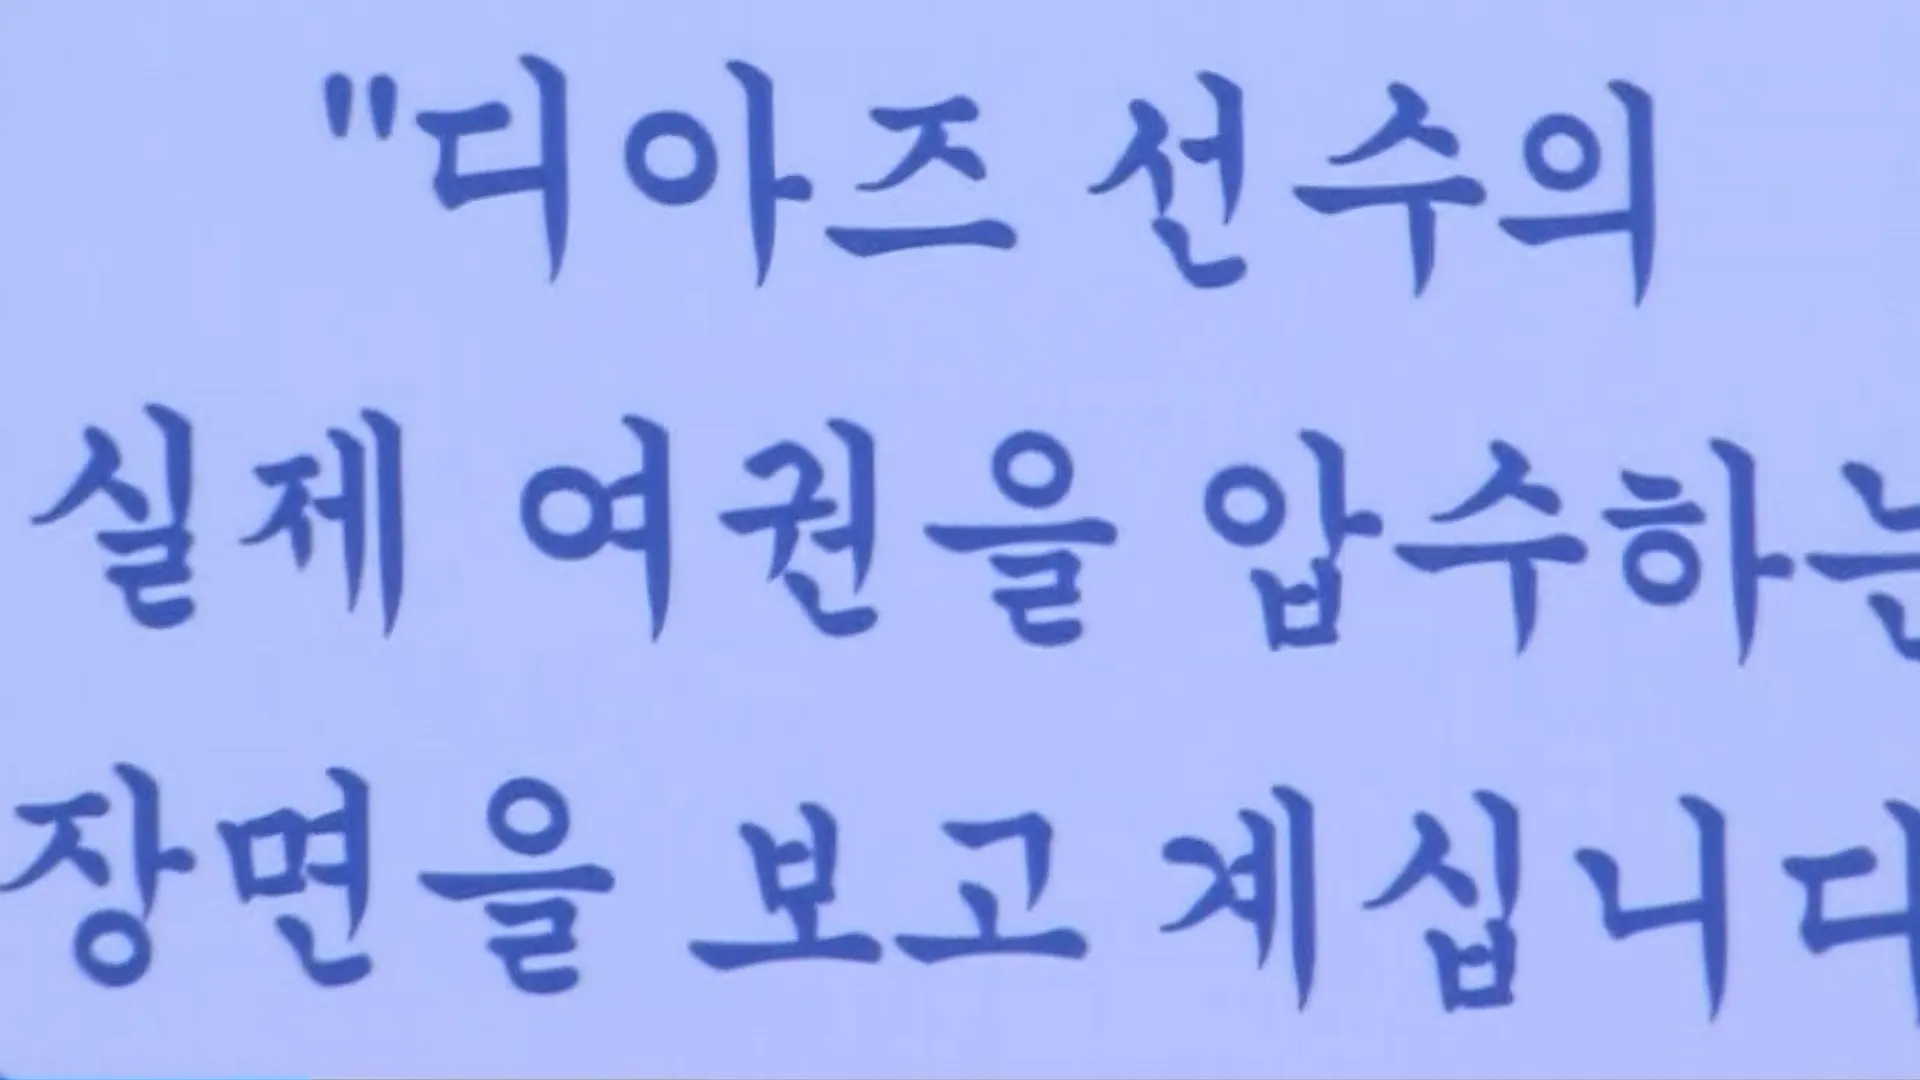 "디아즈 선수의
실제 여권을 압수하는
장면을 보고 계십니다